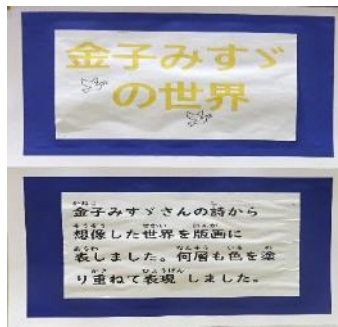 金子みすゞ
の世界
金子みすゞさんの詩から
想像した世界を版画に
表しました。何層も色を塗
り重ねて表現しました。